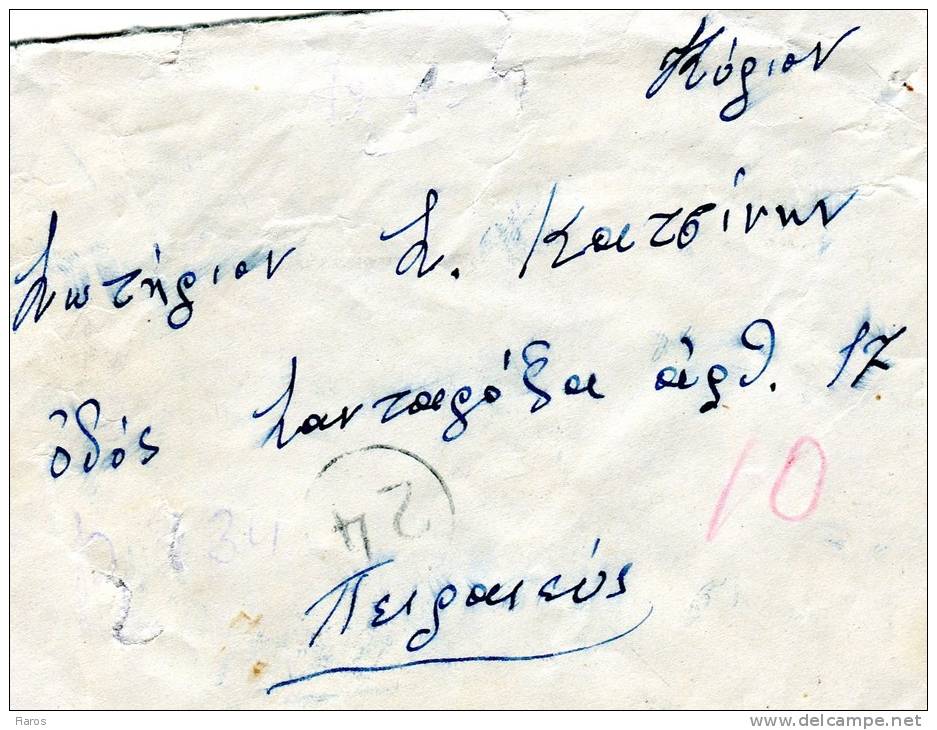 Κύριον
Σωτήριον Σ. Κατσίνην
ὁδός Σανταρόζα ἀρθ. 17
10
24
Πειραιεύς
Raros
www.delcampe.net